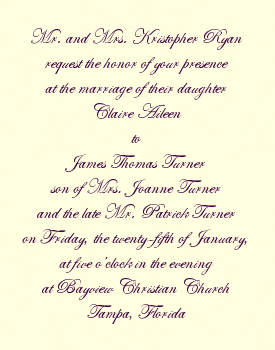 Mr. and Mrs. Kristopher Ryan
request the honor of your presence
at the marriage of their daughter
Claire Aileen
to
James Thomas Turner
son of Mrs. Joanne Turner
and the late Mr. Patrick Turner
on Friday, the twenty-fifth of January,
at five o'clock in the evening
at Bayview Christian Church
Tampa, Florida